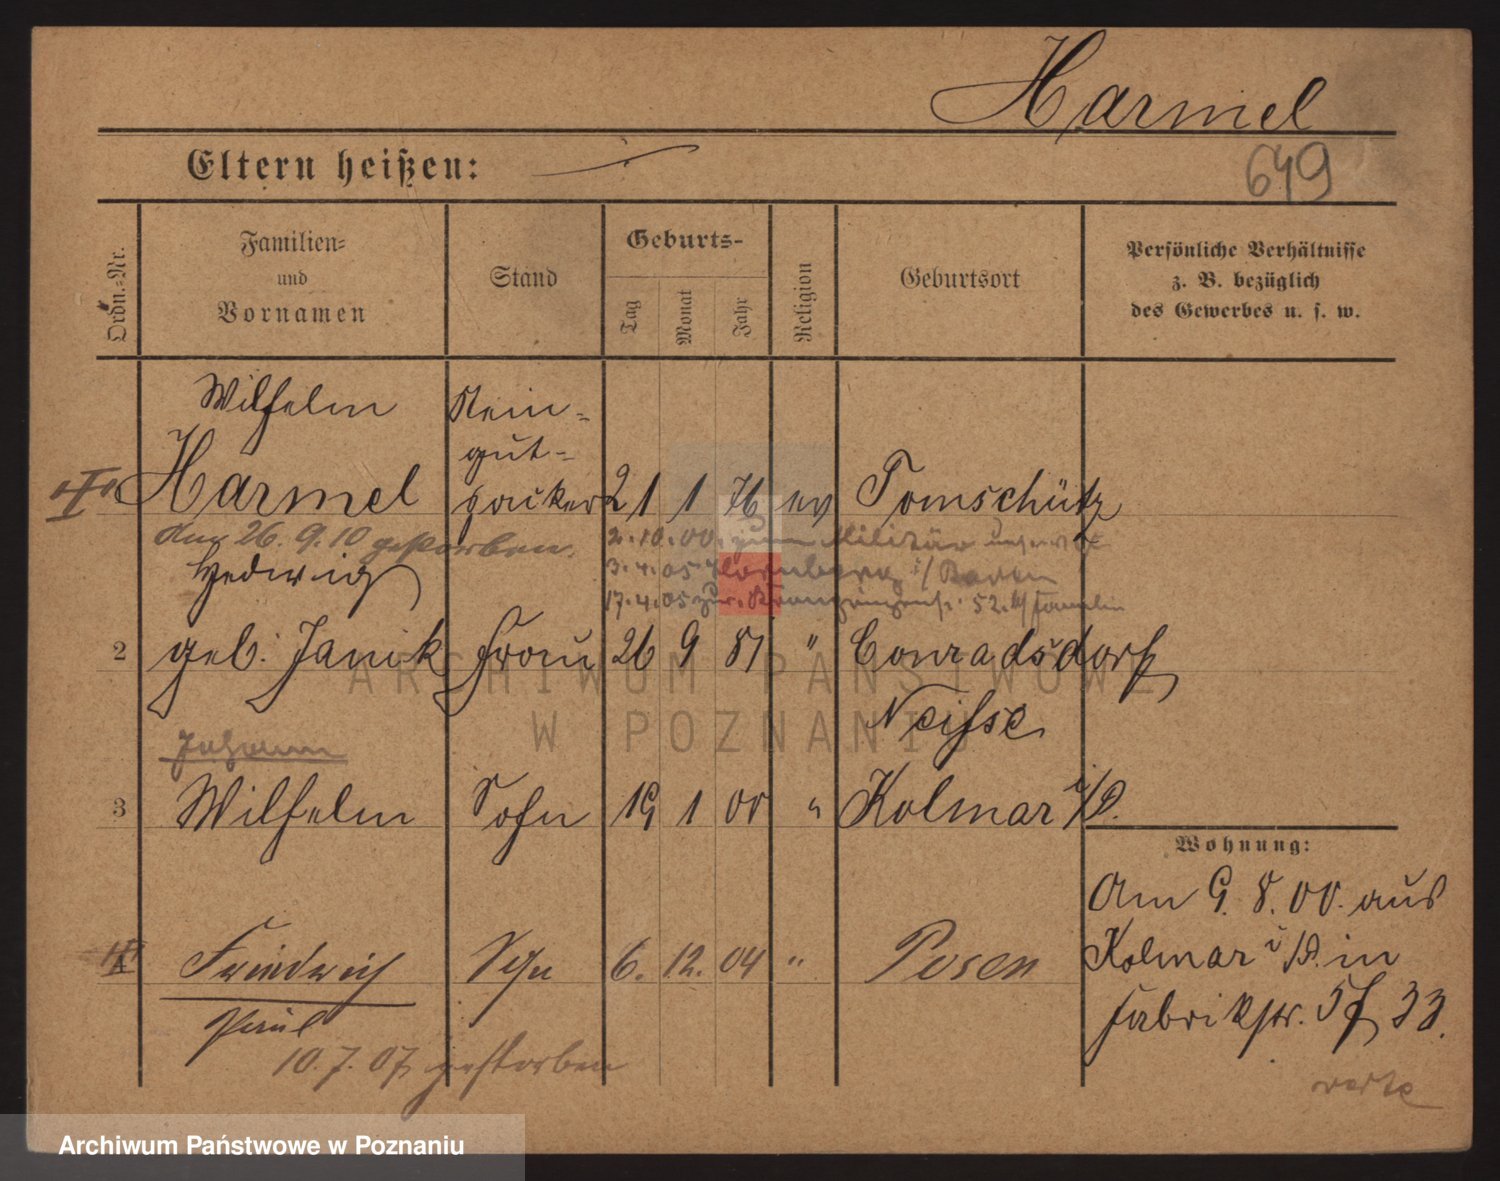 Harmel
Eltern heißen:
649
Ordn.-Nr.
Familien-
und
Vornamen
Stand
Geburts-
Tag
Monat
Jahr
Religion
Geburtsort
Persönliche Verhältnisse
z. B. bezüglich
des Gewerbes u. s. w.
Wilhelm
Harmel
Stein-
gut-
21 1 76 ev Tomschütz
am 26. 9. 10 gestorben.
2. 10. 00. zum Militär
3. 4. 05 Hornberg i/Baden
17. 4. 05 zur.
Hedwig
2 geb. Janik Frau 26 9 81 " Conradsdorf
Neisse
Johann
3 Wilhelm Sohn 19 1 00 " Kolmar i/P.
Wohnung:
Am 9. 8. 00. aus
Kolmar i/P. in
Fabrikstr. 33.
4 Friedrich Sohn 6. 12. 04 " Posen
Paul
10. 7. 07 gestorben
ARCHIWUM PAŃSTWOWE
W POZNANIU
Archiwum Państwowe w Poznaniu